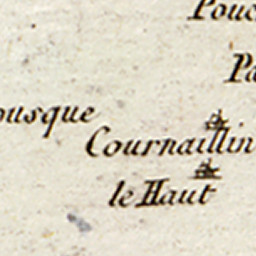 Pouc
Pa
ousque
Cournaillin
le Haut